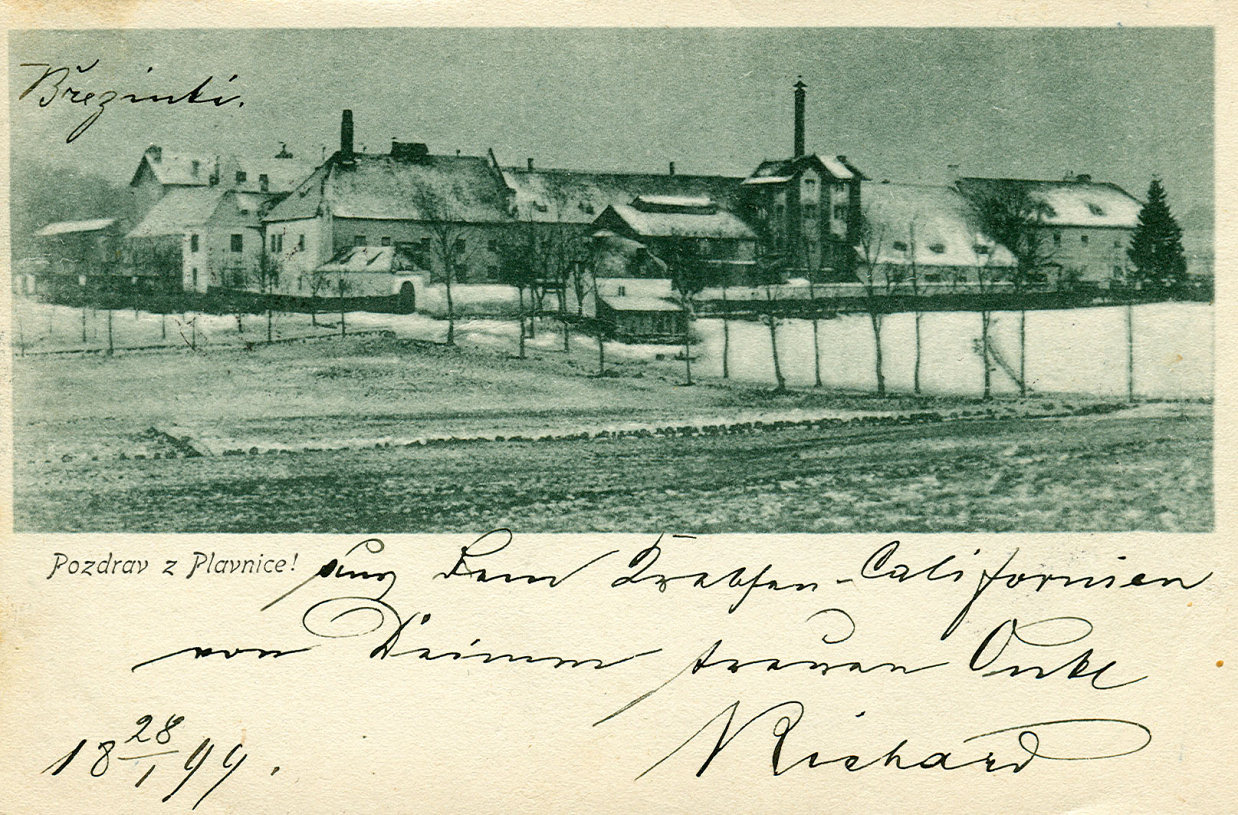 Březinki.
Pozdrav z Plavnice! aus dem Krebsen-Californien
von Deinem treuen Onkel
Richard
18 28/1 99.